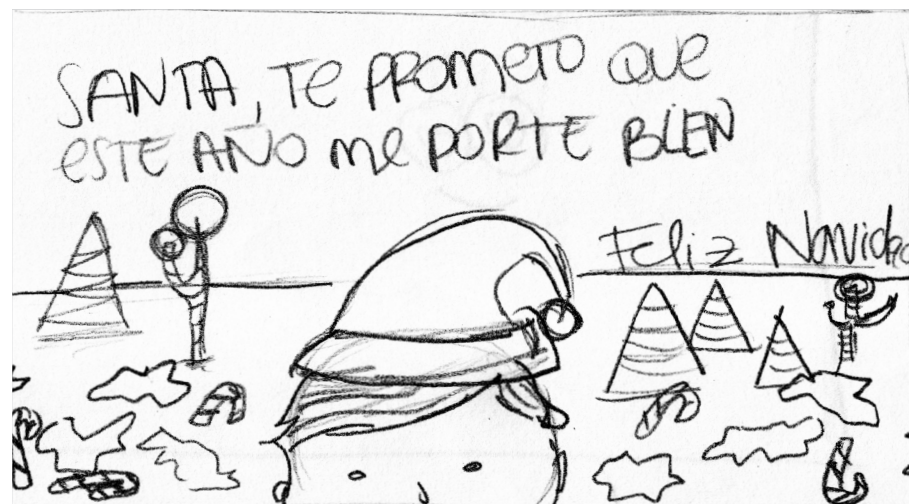 SANTA, TE PROMETO QUE
ESTE AÑO ME PORTE BIEN
Feliz Navidad